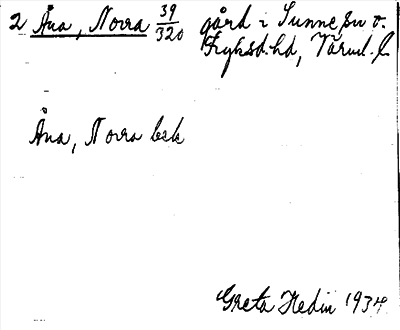 2 Åna, Norra 39/320 gård i Sunne sn o.
Fryksd. hd, Värml. l.
Åna, Norra bsk
Greta Hedin 1934